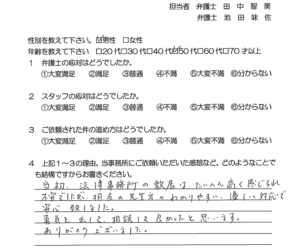 担当者 弁護士 田中智美
弁護士 池田味佐
性別を教えて下さい。 ☑男性 □女性
年齢を教えて下さい □20代□30代□40代☑50代□60代□70才以上
1 弁護士の応対はどうでしたか。
①大変満足 ②満足 ③普通 ④不満 ⑤大変不満 ⑥分からない
2 スタッフの応対はどうでしたか。
①大変満足 ②満足 ③普通 ④不満 ⑤大変不満 ⑥分からない
3 ご依頼された件の進め方はどうでしたか。
①大変満足 ②満足 ③普通 ④不満 ⑤大変不満 ⑥分からない
4 上記1～3の理由、当事務所にご依頼いただいた感想など、どのようなことで
も結構ですからお書きください。
当初、法律事務所の敷居は、たいへん高く感じられ
不安でしたが、担当の先生方のわかりやすい、優しい対応で
安心致しました。
勇気を出して、相談して良かったと思います。
ありがとうございました。